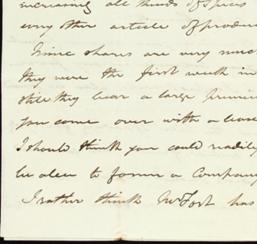 increasing all kinds of Spices
every other article of produc
Mine shares are very muc
they were the first week in
still they bear a large premiu
you come over with a leave
I should think you could readily
be able to form a Company
I rather think McFort has